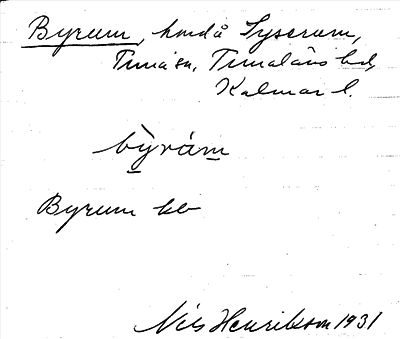 Byrum, hmd å Lyserum,
Tuna sn, Tunaläns hd,
Kalmar l.
bỳrám
Byrum kb
Nils Henrikson 1931